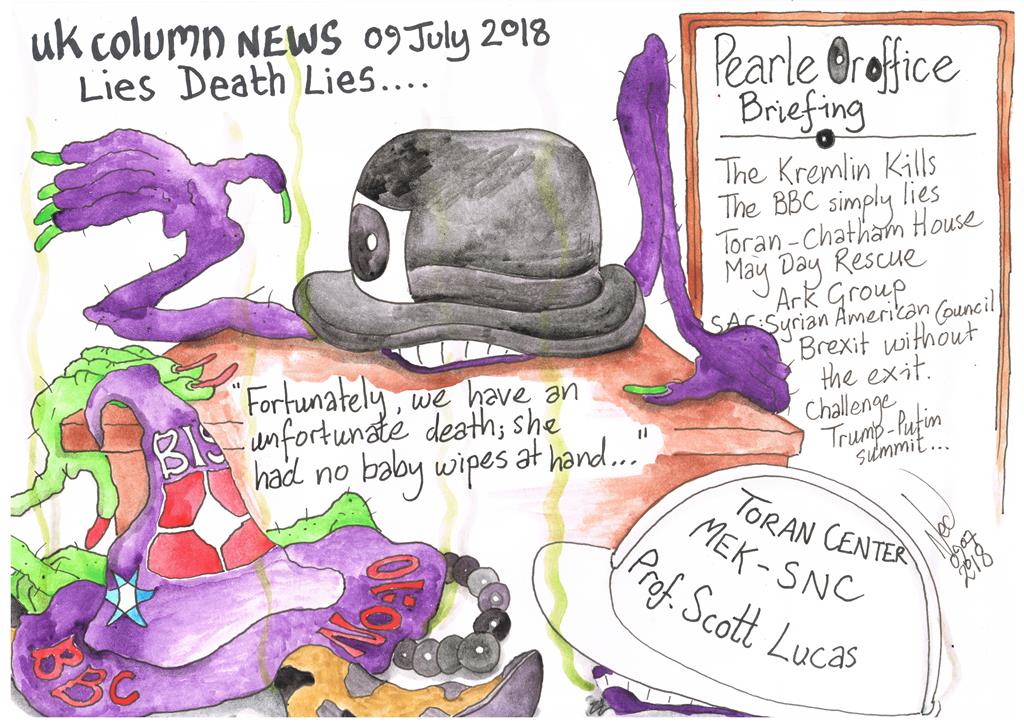 uk column NEWS 09 July 2018
Lies Death Lies....
Pearle Oroffice
Briefing
The Kremlin Kills
The BBC simply lies
Toran-Chatham House
May Day Rescue
Ark Group
SAC: Syrian American Council
Brexit without
the exit.
Challenge
Trump-Putin
summit...
"Fortunately, we have an
unfortunate death; she
had no baby wipes at hand..."
BIS
No:10
BBC
TORAN CENTER
MEK-SNC
Prof. Scott Lucas
2018